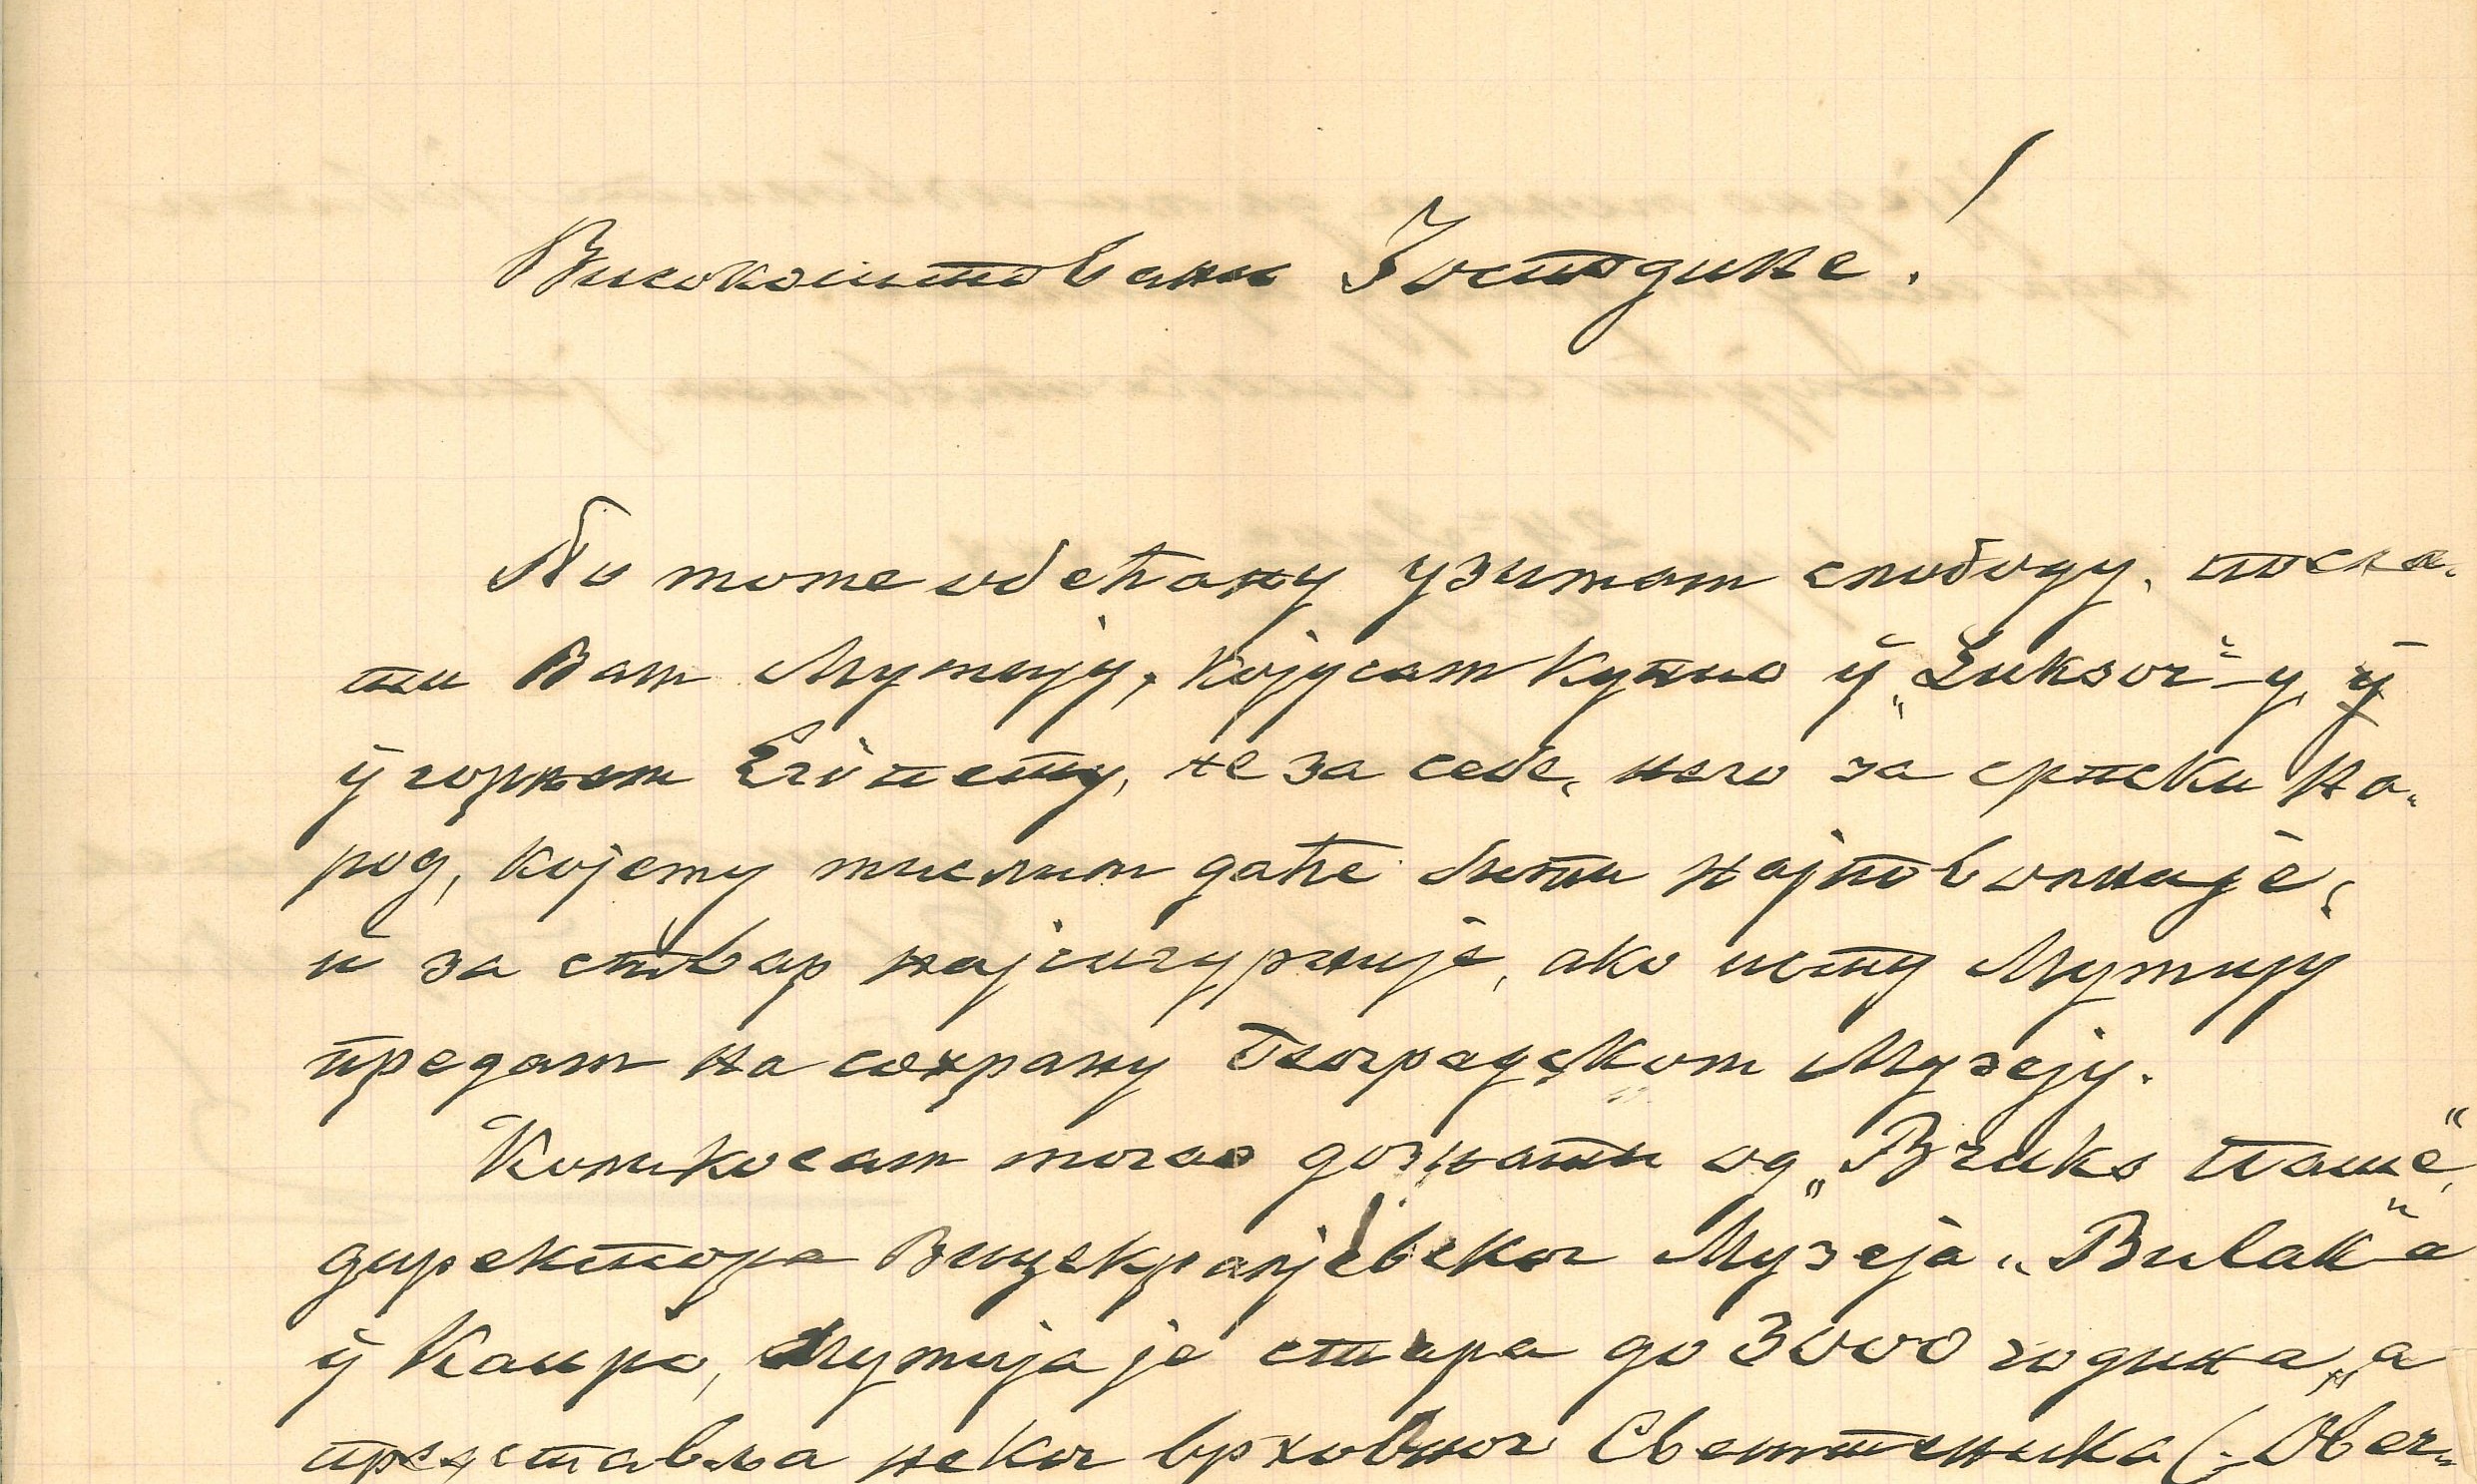 Високоштовани Господине!
По моме обећању узимам слободу, посла-
ти Вам Мумију, коју сам купио у „Luksor“-у, у
у горњем Егѝпету, не за себе, него за српски на-
род, којему мислим да ће бити најповољније,
и за ствар најсигурније, ако исту Мумију
предам на сохрану Београдском Музеју.
Колико сам могао дознати од „Bruks паше“,
директора Вицекраљевског Музеја „Bulak“-а
у Каиро, Мумија је стара до 3000 година, а
представља неког врховног Свештеника (: Ober-